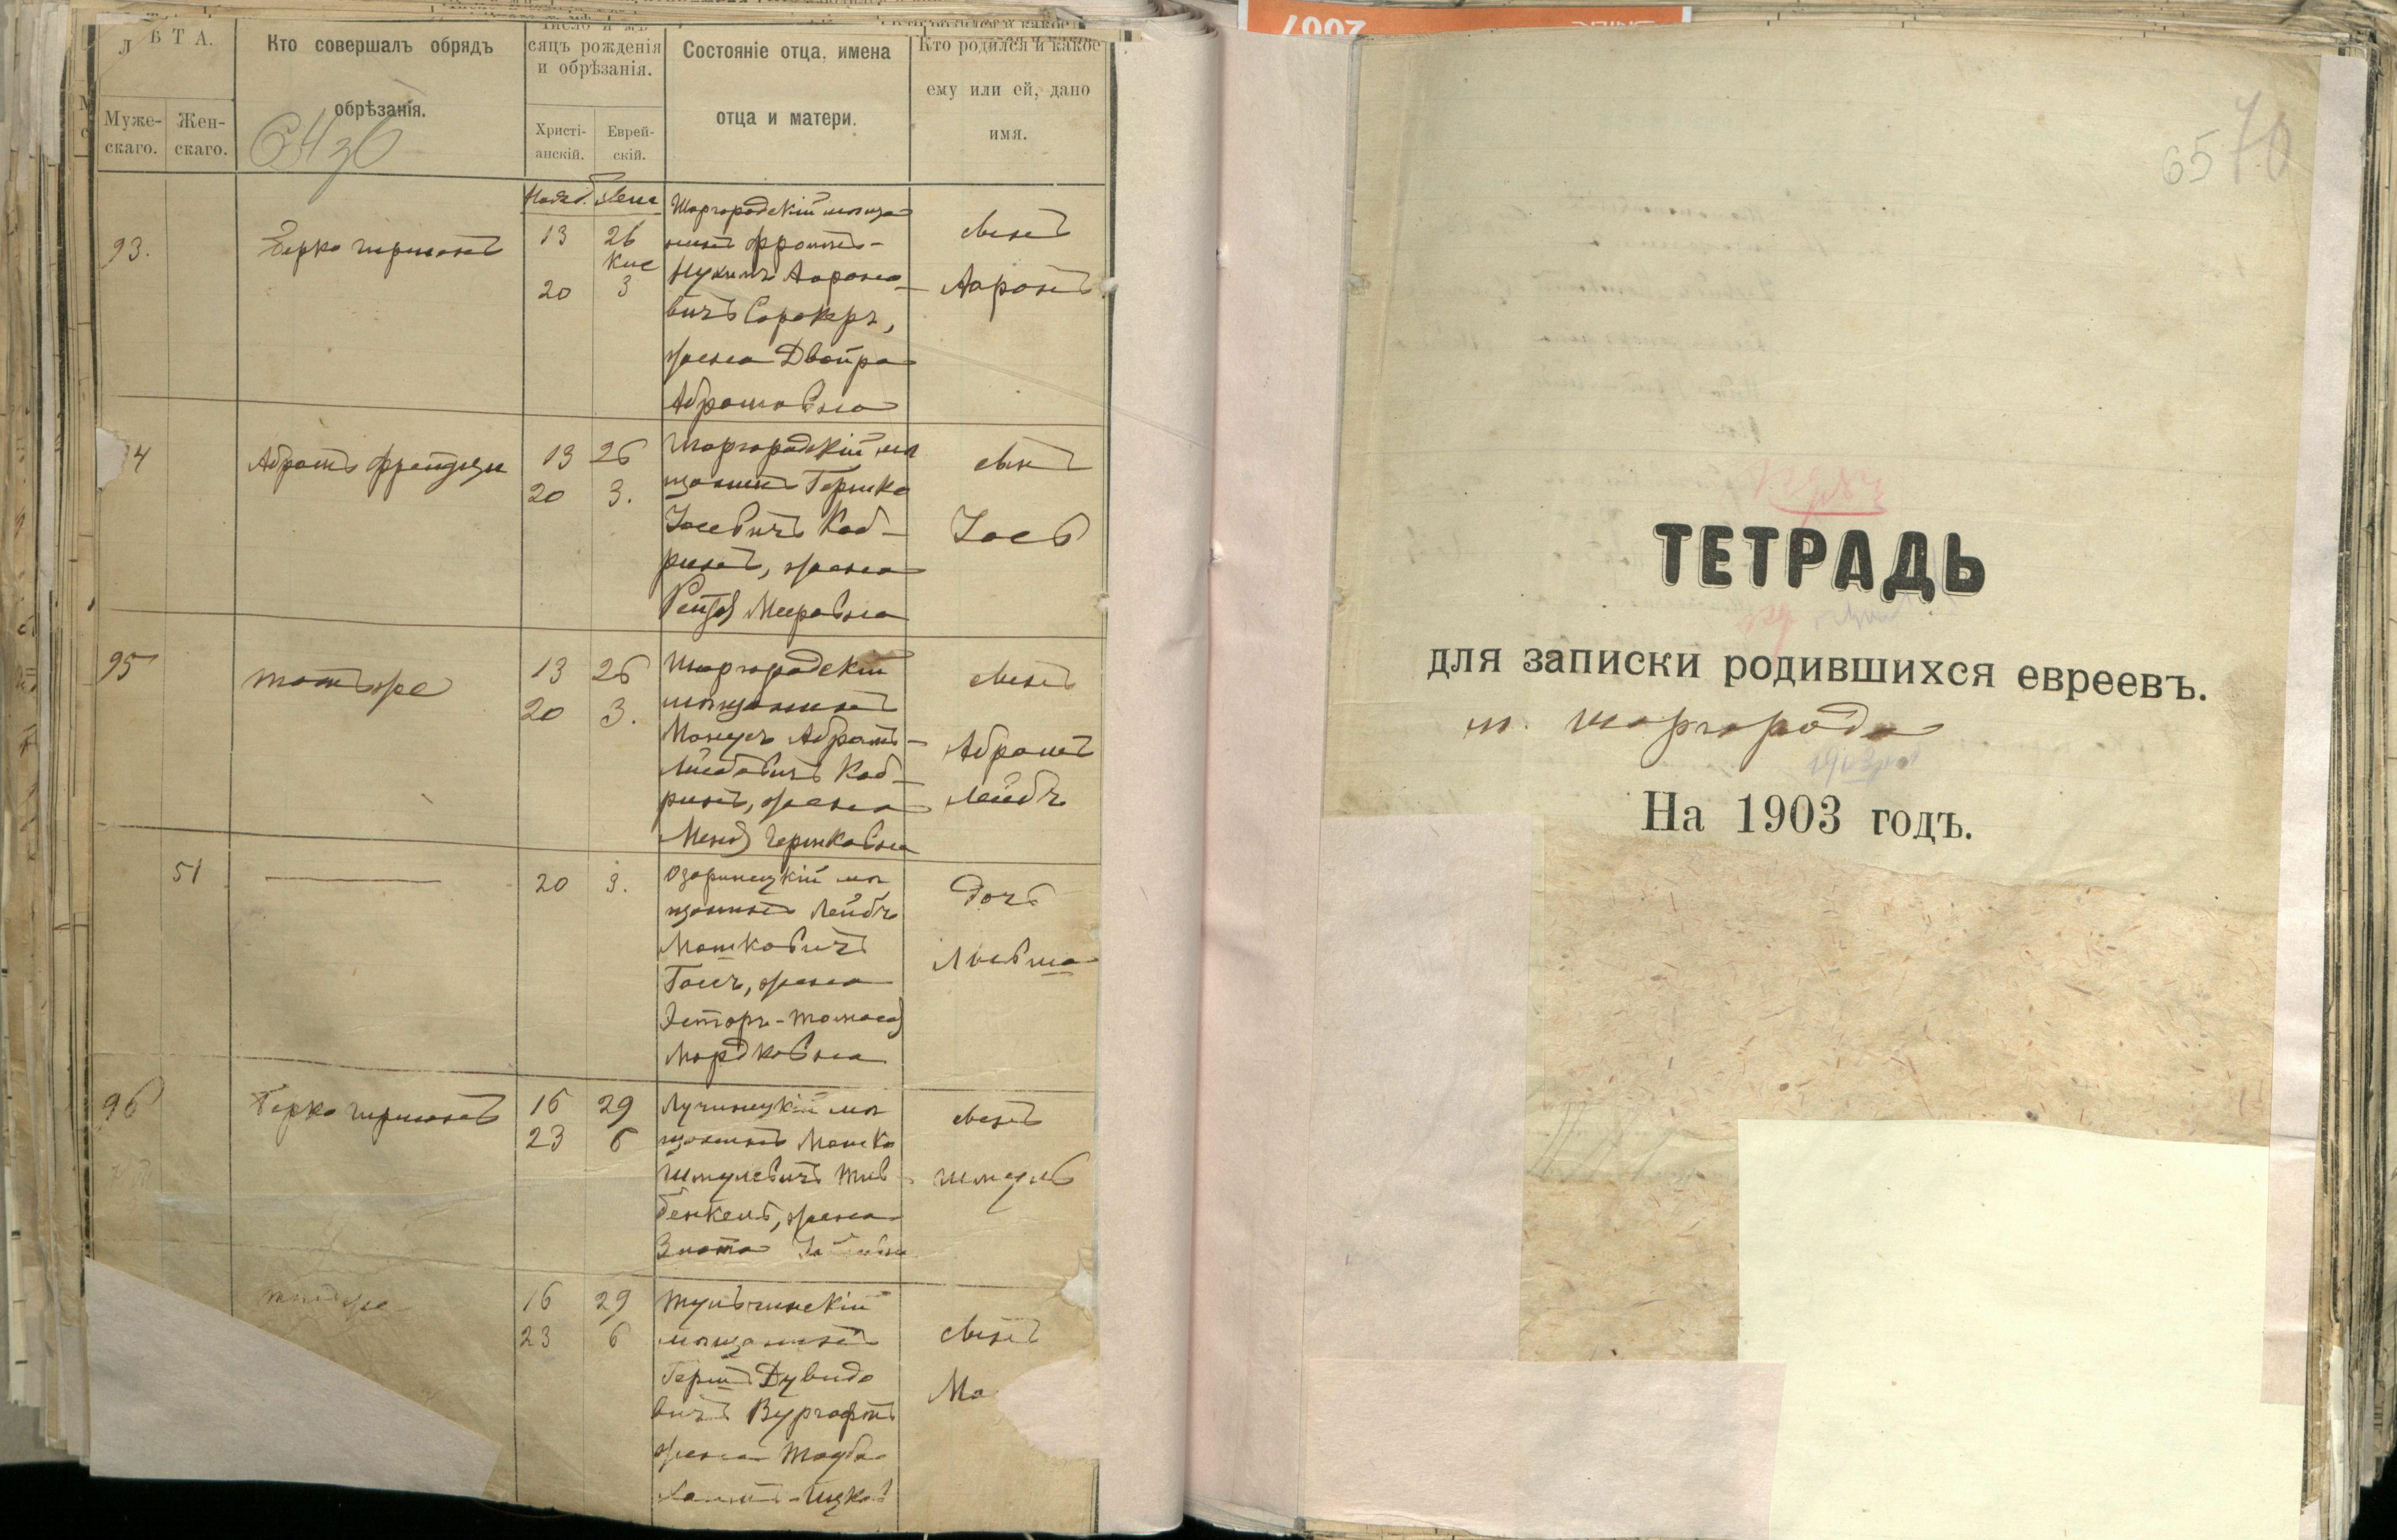 ЛѢТА.
Муже-
скаго.
Жен-
скаго.
Кто совершалъ обрядъ
обрѣзанія.
64 зб
Число и мѣ-
сяцъ рожденія
и обрѣзанія.
Христі-
анскій.
Еврей-
скій.
Состояніе отца, имена
отца и матери.
Кто родился и какое
ему или ей, дано
имя.
93.
Берко Гершонъ
Нояб.
13
26
Кис
20
3
Шаргородскій мѣща
нинъ Фроимъ-
Нухимъ Аароно-
вичъ Сорокеръ,
жена Двойра
Абрамовна
сынъ
Ааронъ
4
Абрамъ
13 26
20 3.
Шаргородскій мѣ
щанинъ Гершко
Іосевичъ Коб-
ринъ, жена
Рейзя Мееровна
сынъ
Іось
95
тотъ же
13 26
20 3.
Шаргородскій
мѣщанинъ
Манусъ Абрамъ-
Лейбовичъ Коб-
ринъ, жена
Меня Гершковна
сынъ
Абрамъ
Лейбъ
51
20 3.
Озаринецкій мѣ
щанинъ Лейбъ
Мошковичъ
жена
Мордковна
дочь
96
Берко Гершонъ
16 29
23 6
Лучинецкій мѣ
щанинъ Мошко
Шмулевичъ
жена
Злота
сынъ
Шмуль
тотъ же
16 29
23 6
Тульчинскій
мѣщанинъ
Герш Дувидо
вичъ Вургафтъ
жена
сынъ
Мо
2007
65 70
ТЕТРАДЬ
для записки родившихся евреевъ.
м. Шаргорода
На 1903 годъ.